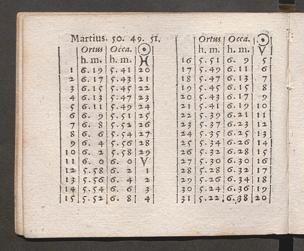 Martius. 50. 49. 51.
Ortus Occa. ☉
h. m. h. m. ♓
1 6.19 5.41 20
2 6.17 5.43 21
3 6.15 5.45 22
4 6.13 5.47 23
5 6.11 5.49 24
6 6. 9 5.51 25
7 6. 8 5.52 26
8 6. 6 5.54 27
9 6. 4 5.56 28
10 6. 2 5.58 29
11 6. 0 6. 0 ♈
12 5.58 6. 2 1
13 5.56 6. 4 2
14 5.54 6. 6 3
15 5.52 6. 8 4
Ortus Occa. ☉
h. m. h. m. ♈
16 5.51 6. 9 5
17 5.49 6.11 6
18 5.47 6.13 7
19 5.45 6.15 8
20 5.43 6.17 9
21 5.41 6.19 10
22 5.39 6.21 11
23 5.37 6.23 12
24 5.35 6.25 13
25 5.34 6.26 14
26 5.32 6.28 15
27 5.30 6.30 16
28 5.28 6.32 17
29 5.26 6.34 18
30 5.24 6.36 19
31 5.22 6.38 20